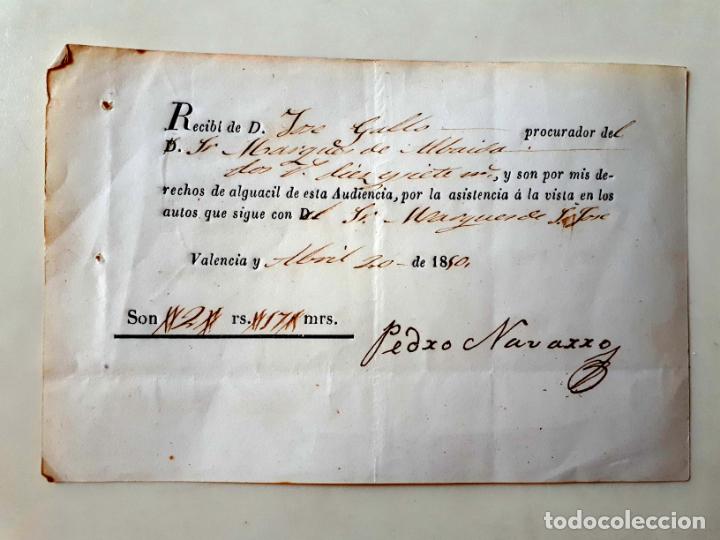 Recibí de D. Jose Gallo procurador del
D. Sr Marques de Albaida
dos rs. diez y siete ms, y son por mis de-
rechos de alguacil de esta Audiencia, por la asistencia á la vista en los
autos que sigue con D.el Sr Marques de Sn Jose
Valencia y Abril 20 de 1850.
Son 2 rs. 17 mrs.
Pedro Navarro
todocoleccion.net